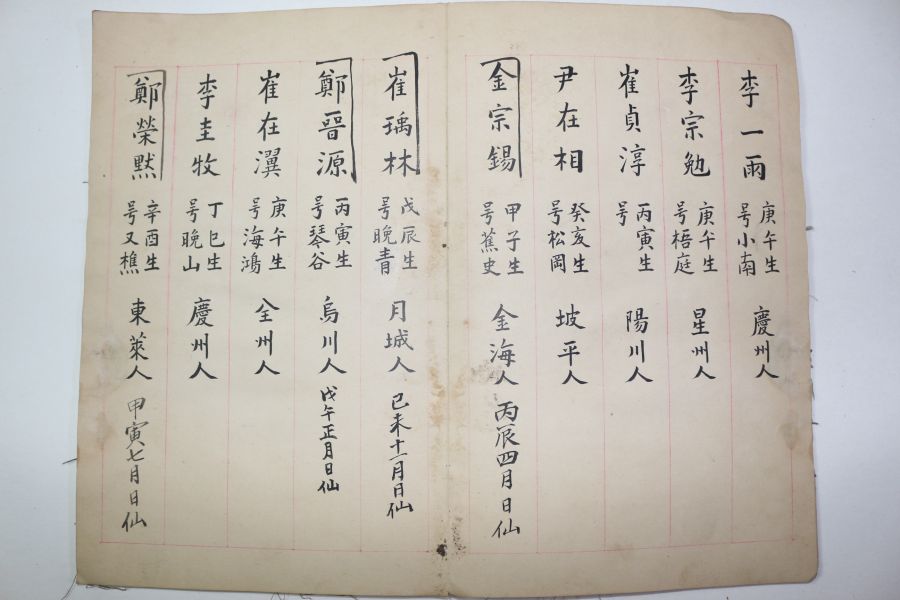 李一雨 庚午生 号小南 慶州人
李宗勉 庚午生 号梧庭 星州人
崔貞淳 丙寅生 号 陽川人
尹在相 癸亥生 号松岡 坡平人
金宗錫 甲子生 号蕉史 金海人 丙辰四月日仙
崔瑀林 戊辰生 号晩青 月城人 己未十一月日仙
鄭晋源 丙寅生 号琴谷 烏川人 戊午正月日仙
崔在瀷 庚午生 号海鴻 全州人
李圭牧 丁巳生 号晩山 慶州人
鄭榮默 辛酉生 号又樵 東萊人 甲寅七月日仙